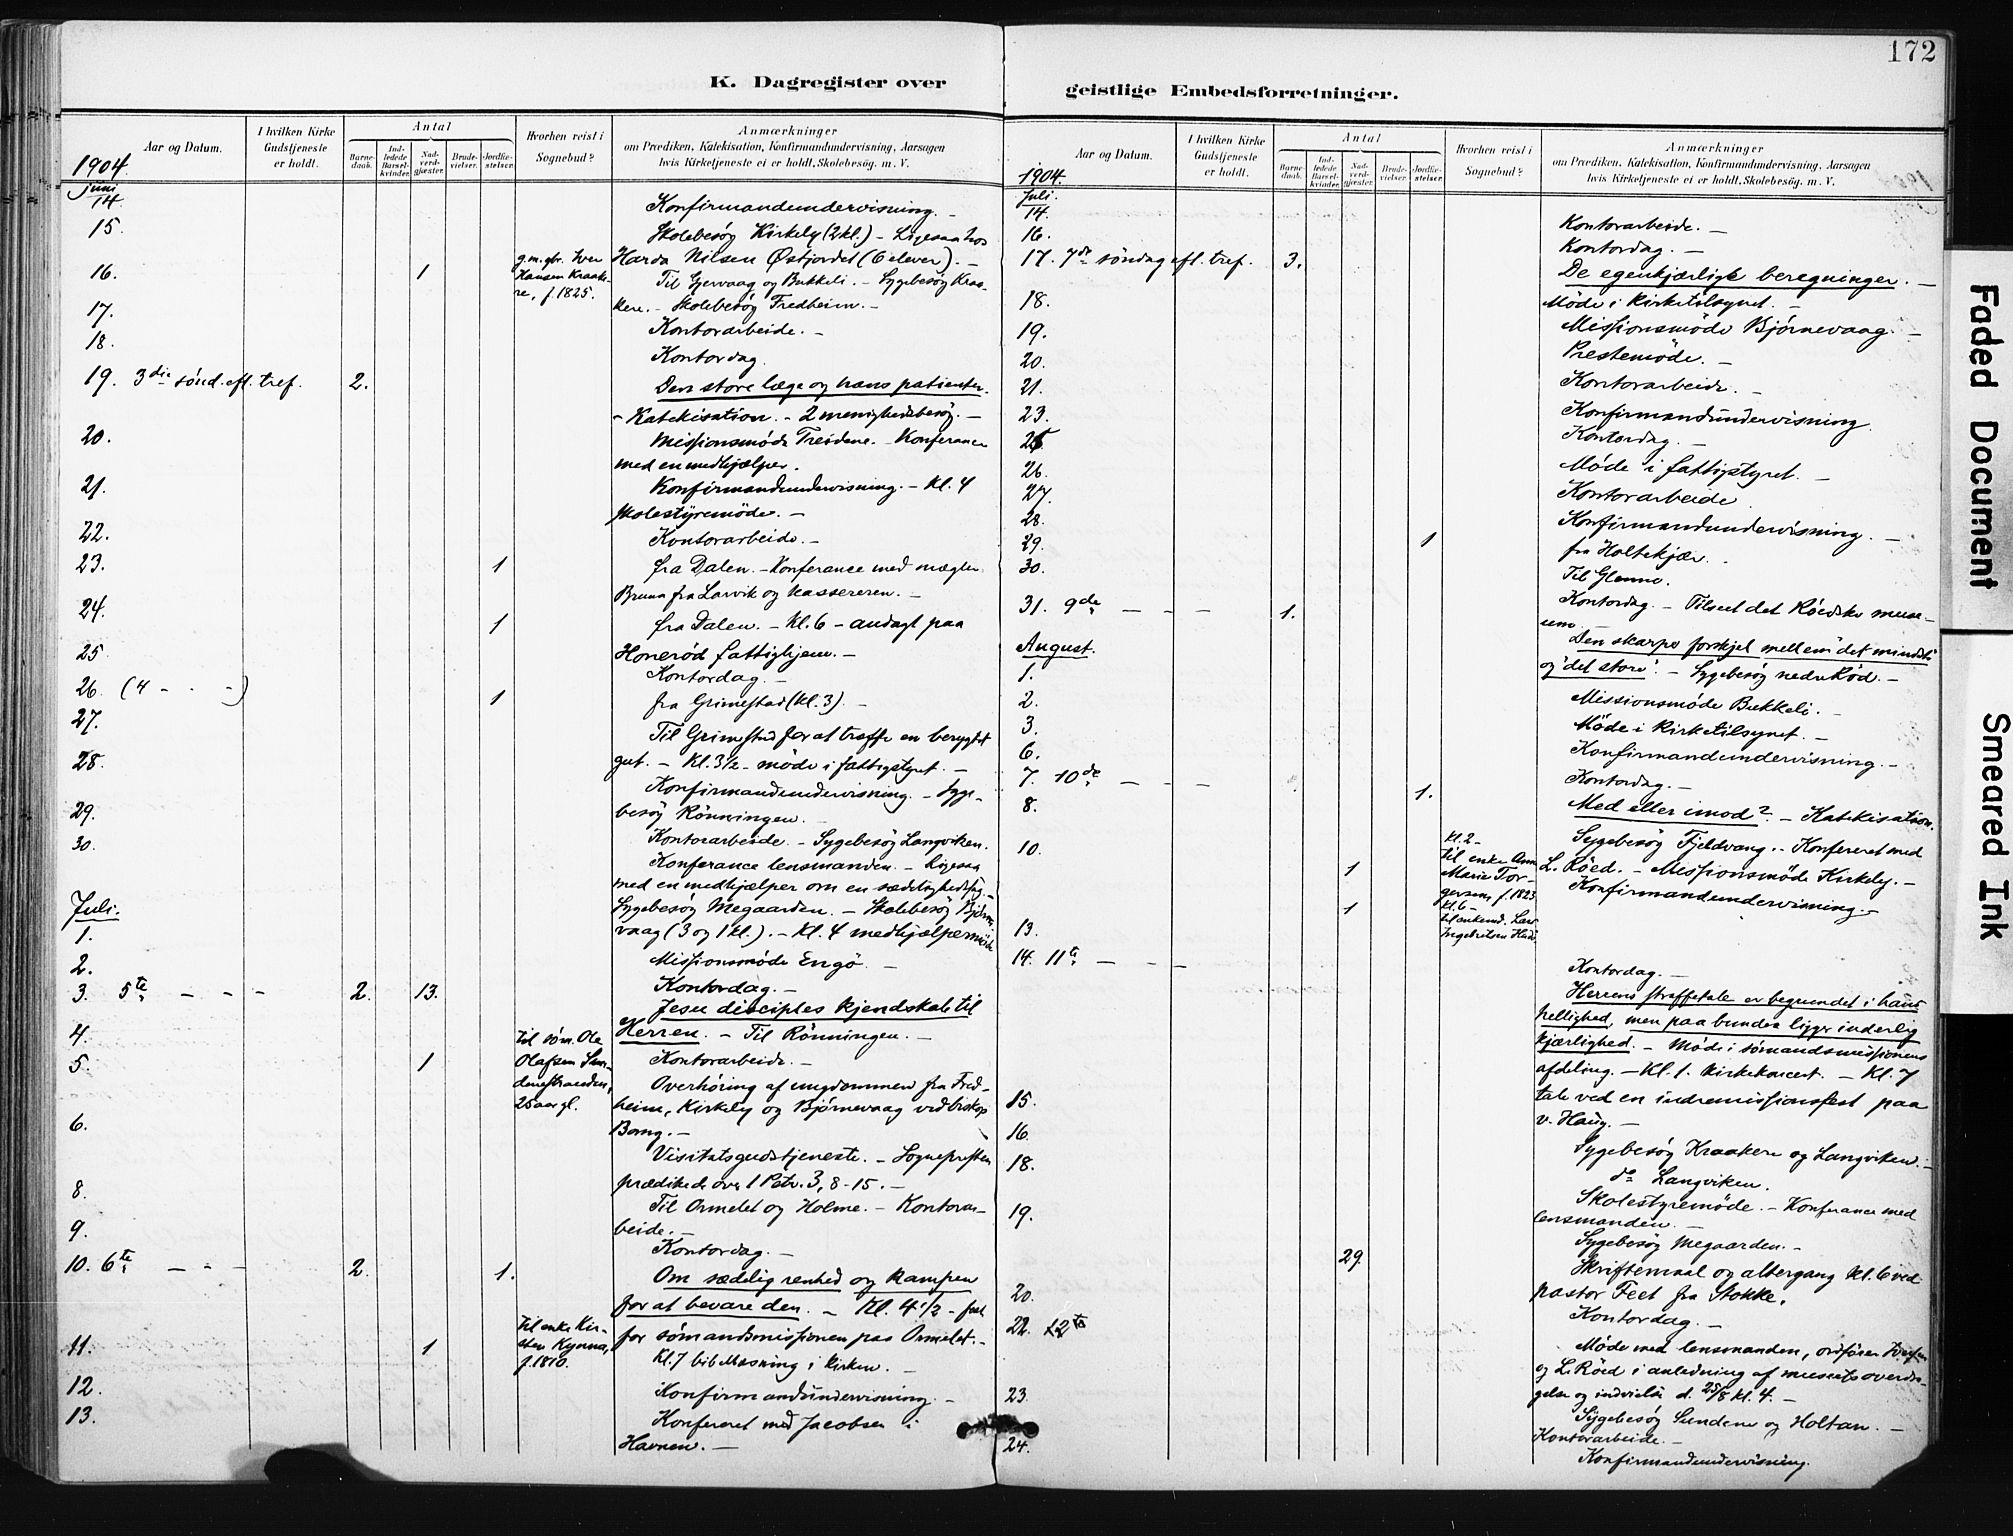 172
K. Dagregister over
geistlige Embedsforretninger.
Aar og Datum.
I hvilken Kirke Gudstjeneste er holdt.
Antal
Barnedaab.
Indledede Barselkvinder.
Nadverdgjæster.
Brudevielser.
Jordfæstelser.
Hvorhen reist i Sognebud?
Anmærkninger
om Prædiken, Katekisation, Konfirmandundervisning, Aarsagen
hvis Kirketjeneste ei er holdt, Skolebesög. m. V.
1904.
Juni
14. Konfirmandundervisning. –
15. Skolebesög Kirkely (2 kl.) – Ligesaa hos
Harda Nilsen Østjordet (6 elever). –
16. 1 g.m. gbr. Iver Hansen Kraakere, f. 1825. Til Gjervaag og Bukkeli. – Sygebesög Kraakere. – Skolebesög Fredheim. –
17. Kontorarbeide. –
18. Kontordag.
19. 3die sönd. eft. tref. 2. Den store læge og hans patienter.
– Katekisation. – 2 menighedsbesög. –
20. Missionsmöde Treidene. – Konferance
med en medhjælper.
21. Konfirmandundervisning. – Kl. 4
Skolestyremöde. –
22. Kontorarbeide. –
23. 1 fra Dalen. – Konferance med mægler
Bruun fra Larvik og kassereren. –
24. 1 fra Dalen. – Kl. 6 – andagt paa
Honerød fattighjem. –
25 Kontordag. –
26. (4 – – –) 1 fra Grimestad (kl. 3). –
27. Til Grimestad for at træffe en berygtet
gut. – Kl. 3½ – möde i fattigstyret. –
28. Konfirmandundervisning. – Sygebesög Rönningen. –
29. Kontorarbeide. – Sygebesög Langviken.
30. Konferance lensmanden. – Ligesaa
med en medhjælper om en sædelighedssag. –
Juli.
1. Sygebesög Megaarden. – Skolebesög Bjørnevaag (3 og 1 kl.). – Kl. 4 medhjælpermöde
2. Missionsmöde Engö. –
Kontordag. –
3. 5te – – – 2. 13. Jesu disciples kjendskab til
Herren. – Til Rönningen. –
4. Kontorarbeide. –
5. 1 til søm. Ole Olafsen Sundenestranden, 25 aar gl. Overhøring af ungdommen fra Fredheim, Kirkely og Bjørnevaag ved biskop
Bang. –
6. Visitatsgudstjeneste. – Sognepresten
prædikede over 1 Petr. 3, 8-15. –
8. Til Ormelet og Holme. – Kontorarbeide. –
9. Kontordag. –
10. 6te – – – 2. 1. Om sædelig renhed og kampen
for at bevare den. – Kl. 4½ – fest
for sömandsmissionen paa Ormelet. –
Kl. 7 bibellæsning i kirken. –
11. 1 til enke Kirsten Kynna, f. 1810.
12. Konfirmandundervisning. –
13. Konfereret med Jacobsen i
Havnen. –
Aar og Datum.
I hvilken Kirke Gudstjeneste er holdt.
Antal
Barnedaab.
Indledede Barselkvinder.
Nadverdgjæster.
Brudevielser.
Jordfæstelser.
Hvorhen reist i Sognebud?
Anmærkninger
om Prædiken, Katekisation, Konfirmandundervisning, Aarsagen
hvis Kirketjeneste ei er holdt, Skolebesög. m. V.
1904.
Juli.
14. Kontorarbeide. –
16. Kontordag. –
17. 7de söndag eft. tref. 3. De egenkjærliges beregninger. –
18. Möde i kirketilsynet. –
19. Missionsmöde Bjørnevaag. –
20. Prestemöde. –
21. Kontorarbeide. –
23. Konfirmandundervisning.
25. Kontordag. –
26. Möde i fattigstyret. –
27. Kontorarbeide
28. Konfirmandundervisning. –
29. 1 fra Holtekjær. –
30. Til Glenne.
Kontordag. – Tilseet det Röedske museum.
31. 9de – – – 1. Den skarpe forskjel mellem "det mindste"
og "det store". – Sygebesög nedre Röd. –
August.
1. Missionsmöde Bukkeli. –
2. Möde i kirketilsynet. –
3. Konfirmandundervisning. –
6. Kontordag. –
7. 10de – – – 1. Med eller imod? – Katekisation.
8. Sygebesög Fjeldvang. – Konfereret med
L. Röed. – Missionsmöde Kirkely. –
10. Kl. 2 – til enke Ann Marie Torgersen, f. 1823 1 Konfirmandundervisning. –
Kl. 6 – til enkemd. Lars Ingebretsen 1
13. Kontordag. –
14. 11te – – – Herrens straffetale er begrundet i hans
hellighed, men paa bunden ligger inderlig
kjærlighed. – Möde i sömandsmissionens
afdeling. – Kl. 1. kirkekoncert. – Kl. 7
tale ved en indremissionsfest paa
v. Haug. –
15. Sygebesög Kraakere og Langviken. –
16. do Langviken.
18. Skolestyremöde. – Konferance med
lensmanden. –
19. Sygebesög Megaarden. –
29. Skriftemaal og altergang kl. 6 ved
pastor Feet fra Stokke.
20. Kontordag. –
22. 12te Möde med lensmanden, ordfører
og L. Röed i anledning af museets overdragelse og indvielse d. 25/8 kl. 4. –
23. Sygebesög Sundene og Holtan. –
Kontorarbeide. –
24. Konfirmandundervisning.
Faded Document
Smeared Ink